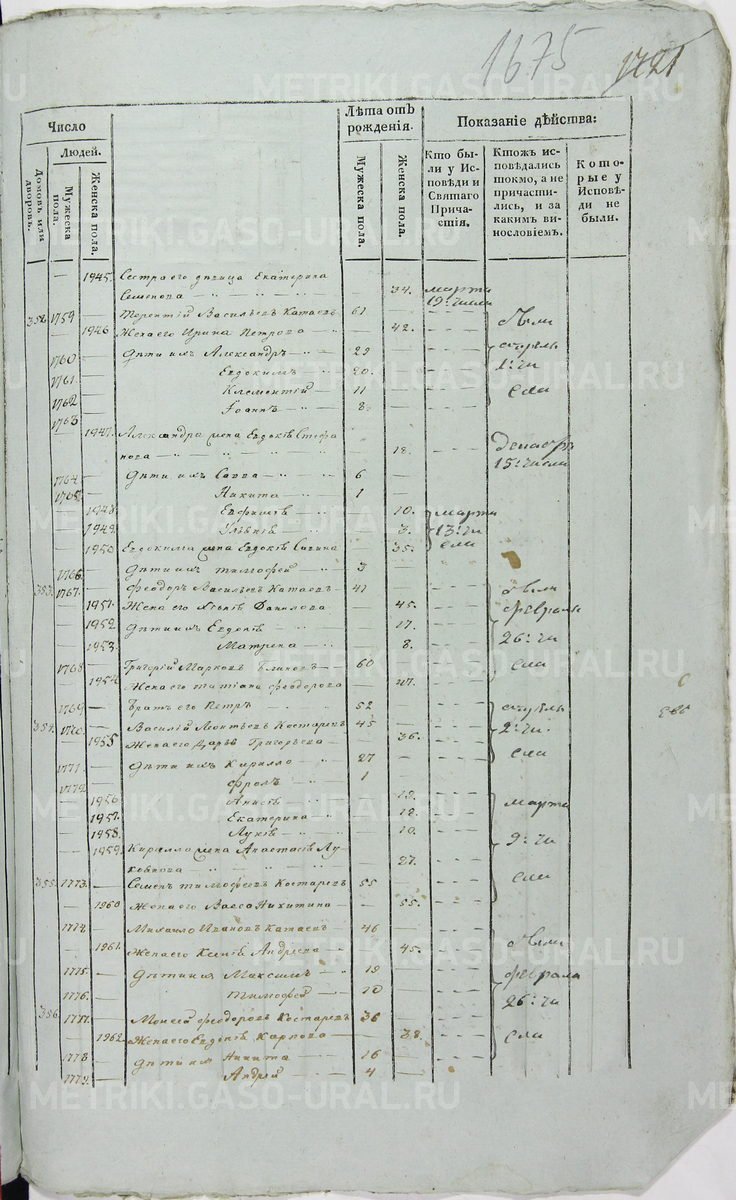 1675
Число
Людей.
Домовъ или дворовъ.
Мужеска пола.
Женска пола.
Лѣта отъ рожденія.
Мужеска пола.
Женска пола.
Показаніе дѣйства:
Кто были у Исповѣди и Святаго Причастія.
Ктожъ исповѣдались токмо, а не причастились, и за какимъ винословіемъ.
Которые у Исповѣди не были.
1945. Сестра его дѣвица Екатерина
Семенова 34. марта 19. числа
352. 1759 Терентій Васильевъ Катаевъ 61
1946 Жена его Ирина Петрова 42. были
1760 Дѣти ихъ Александръ 29 апрѣль
1761. Евдокимъ 20. 1. чи
1762 Климентій 11 сла
1763 Іоаннъ 8
1947. Александра жена Евдокія Стефа
нова 18. 15. числа
1764 Дѣти ихъ Савва 6
1765. Никита 1
1948. 10. марта
1949. 3. 13. чи
1950 Евдокима жена Евдокія Савина 35. сла
1766. Дѣти ихъ Тимофей 3
353. 1767. Феодоръ Васильевъ Катаевъ 41 были
1951. Жена его Данилова 45. февраля
1952. Дѣти ихъ Евдокія 17. 26. чи
1953. Матрена 8. сла
1768. Григорій Марковъ Блиновъ 60
1954. Жена его Татіана Феодорова 47.
1769 Братъ его Петръ 52 апрѣль
354. 1770. Василій Леонтьевъ Костаревъ 45 2. чи
1955 Жена его Дарья Григорьева 36. сла
1771. Дѣти ихъ Кирилло 27
1772. Фролъ 1
1956 марта
1957. Екатерина 12.
1958. 10. 9. чи
1959. Кирилла жена Анастасія Лу
коянова 27. сла
355. 1773. Семенъ Тимофеевъ Костаревъ 55
1960 Жена его Васса Никитина 55.
1774. Михаило Ивановъ Катаевъ 46
1961. Жена его Ксенія Андреева 45. были
1775. Дѣти ихъ Максимъ 19 февраля
1776. Тимофей 10 26. чи
356. 1777. Моисей Феодоровъ Костаревъ 36
1962. Жена его Евдокія Карпова 38. сла
1778 Дѣти ихъ Никита 16
1779. Андрей 4
METRIKI.GASO-URAL.RU